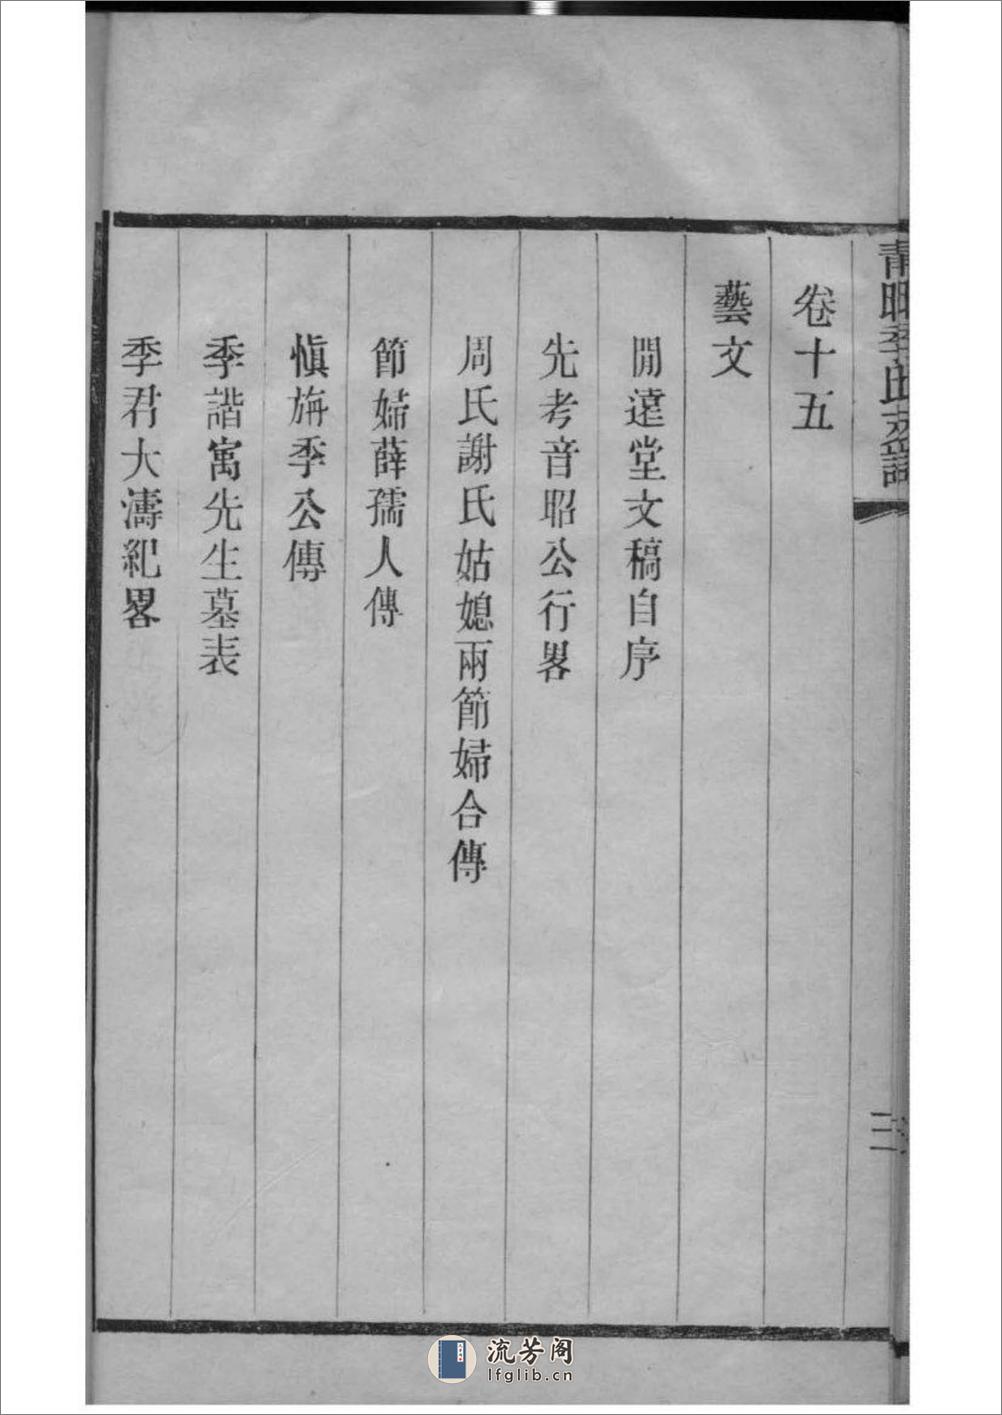 青暘季氏支譜
卷十五
藝文
閒遠堂文稿自序
先考音昭公行畧
周氏謝氏姑媳兩節婦合傳
節婦薛孺人傳
愼旃季公傳
季諧寓先生墓表
季君大濤紀畧
流芳阁
lfglib.cn